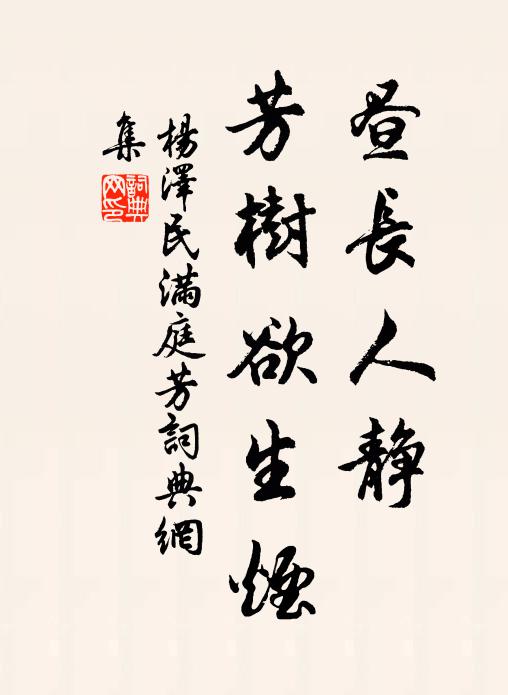 昼長人静
芳樹欲生煙
楊澤民滿庭芳詞典網
集
詞典網印